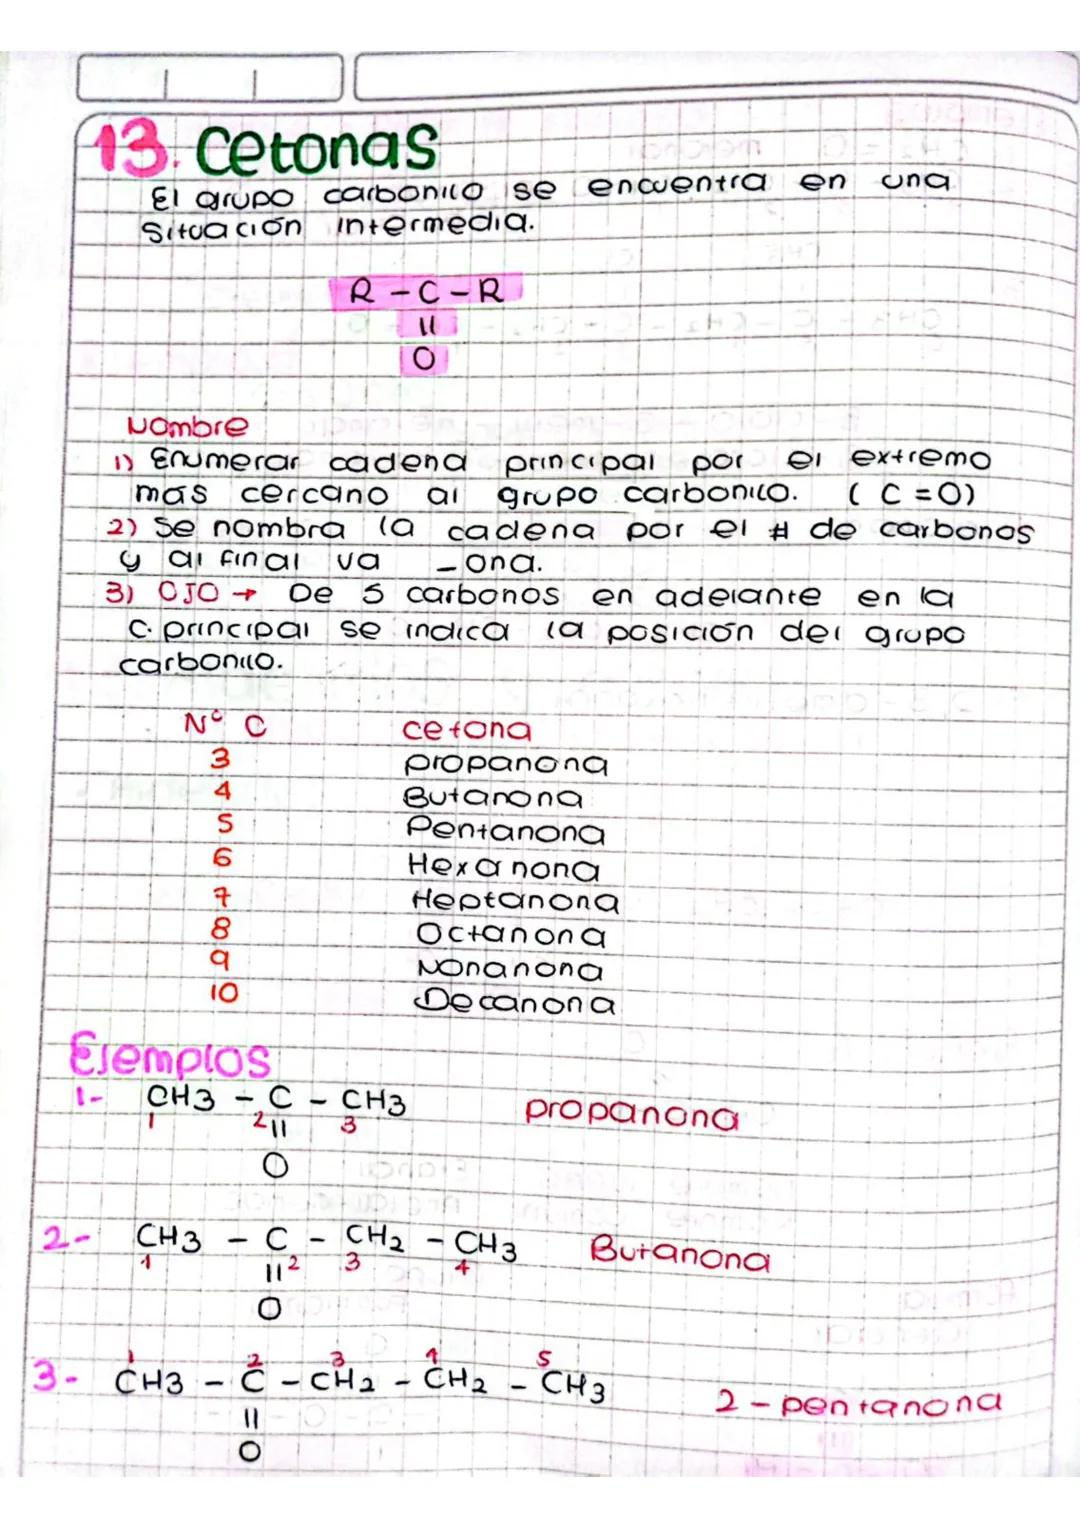 13. Cetonas
El grupo carbonico se encuentra en una
Situación intermedia.
R - C - R
||
O
Nombre
1) Enumerar cadena principal por el extremo
mas cercano al grupo carbonico. ( C = O)
2) Se nombra la cadena por el # de carbonos
y al final va - ona.
3) OJO → De 5 carbonos en adelante en la
C. principal se indica la posición del grupo
carbonico.
N° C cetona
3 propanona
4 Butanona
5 Pentanona
6 Hexanona
7 Heptanona
8 Octanona
9 Nonanona
10 Decanona
Ejemplos
1- CH3 - C - CH3 propanona
1 2 || 3
O
2- CH3 - C - CH2 - CH3 Butanona
1 || 2 3 4
O
1 2 3 4 5
3- CH3 - C - CH2 - CH2 - CH3 2 - pentanona
||
O